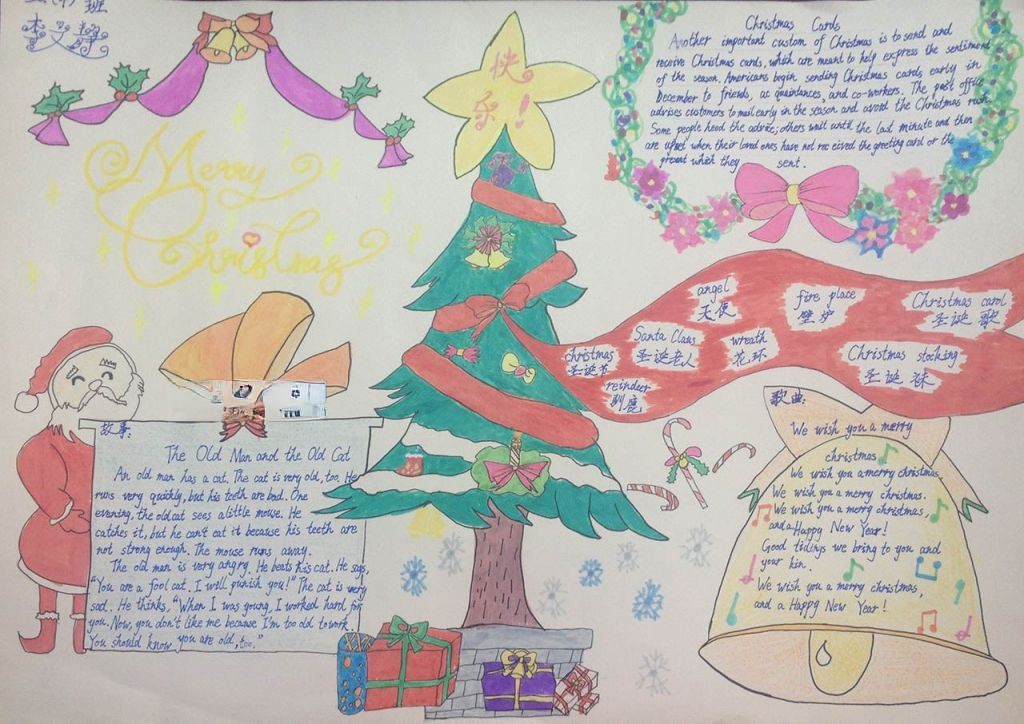 班
Merry
Christmas
快
乐!
Christmas Cards
Another important custom of Christmas is to send and
receive Christmas cards, which are meant to help express the sentiment
of the season. Americans begin sending Christmas cards early in
December to friends, ac quaintances, and co-workers. The post office
advises customers to mail early in the season and avoid the Christmas rush.
Some people heed the advice; others wait until the last minute and then
are upset when their loved ones have not received the greeting card or the
present which they sent.
angel
天使
fire place
壁炉
Christmas carol
圣诞歌
Santa Claus
圣诞老人
wreath
花环
christmas
圣诞节
Christmas stocking
圣诞袜
reindeer
驯鹿
故事:
The Old Man and the Old Cat
An old man has a cat. The cat is very old, too. He
runs very quickly, but his teeth are bad. One
evening, the old cat sees a little mouse. He
catches it, but he can't eat it because his teeth are
not strong enough. The mouse runs away.
The old man is very angry. He beats his cat. He says,
"You are a fool cat. I will punish you!" The cat is very
sad. He thinks, "When I was young, I worked hard for
you. Now, you don't like me because I'm too old to work.
You should know you are old, too."
歌曲:
We wish you a merry
christmas
We wish you a merry christmas,
We wish you a merry christmas.
We wish you a merry christmas,
and a Happy New Year!
Good tidings we bring to you and
your kin.
We wish you a merry christmas,
and a Happy New Year!